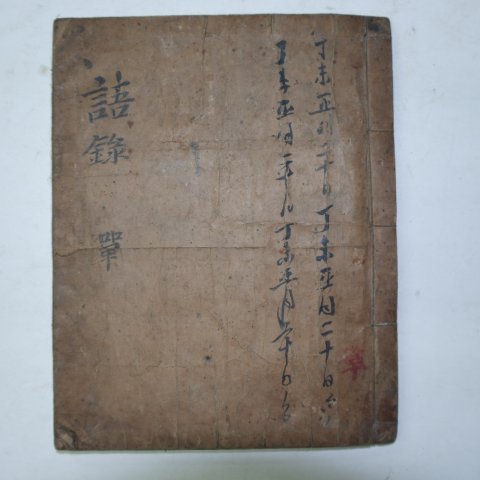 丁未正月二十日丁未正月二十日
丁未正月二十日丁未正月二十日
語錄
單